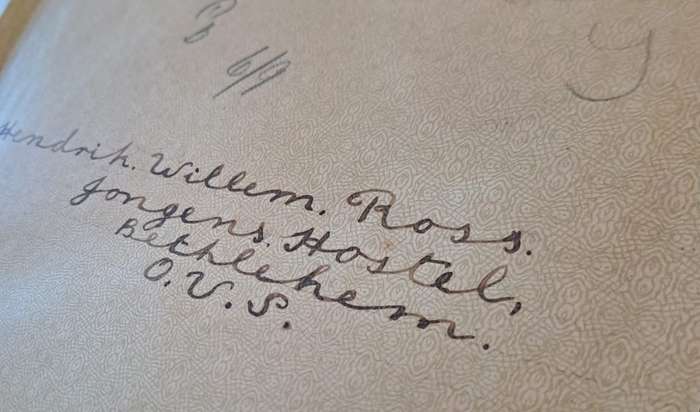 6/9
Hendrik. Willem. Ross.
Jongens. Hostel,
Bethlehem.
O.V.S.